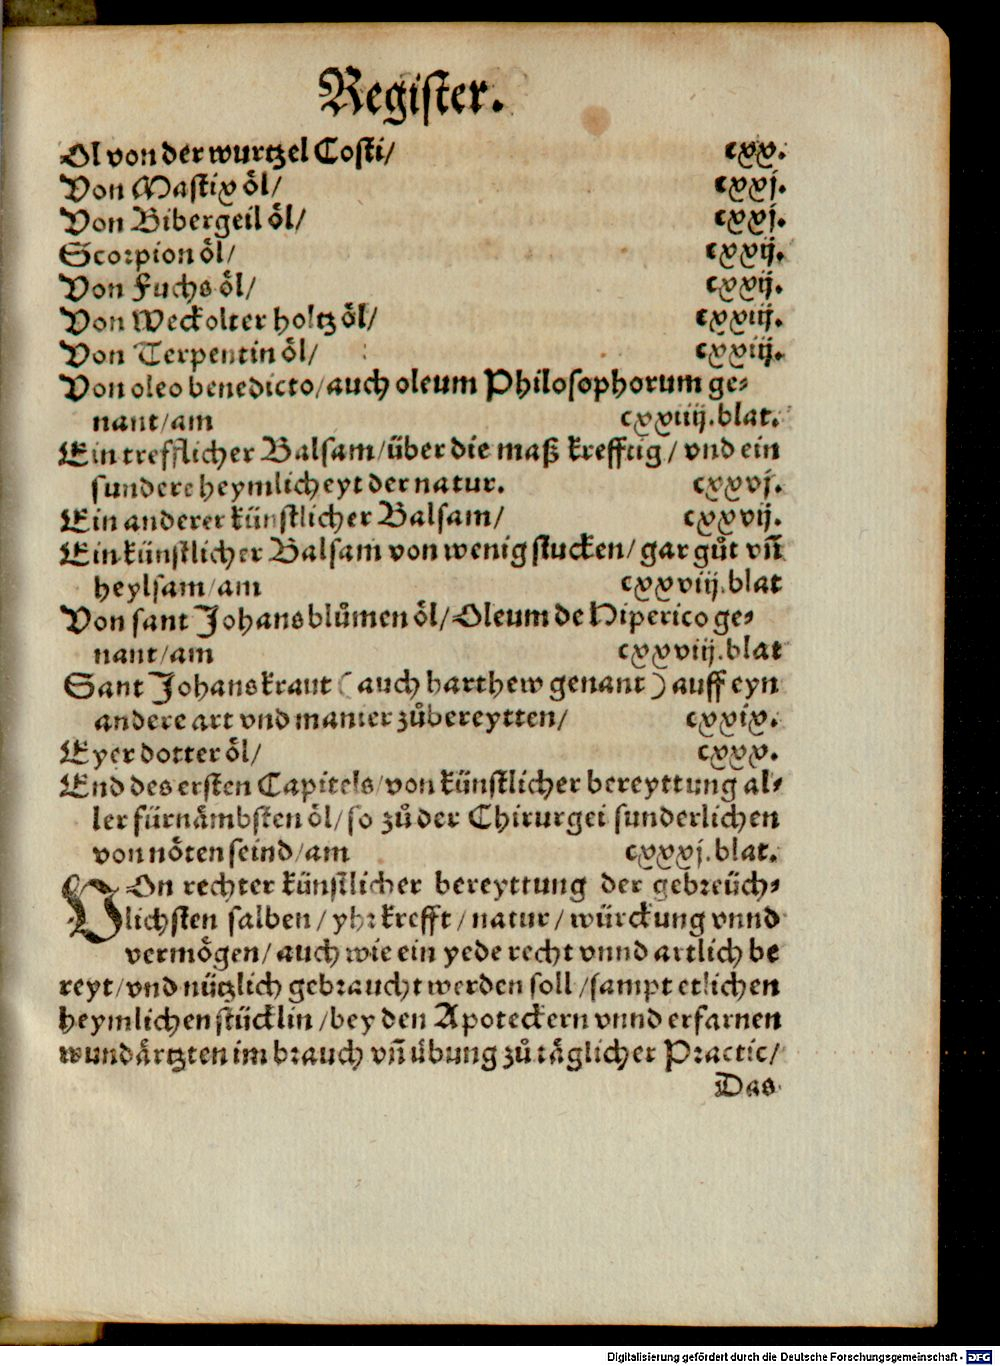 Register.
Öl von der wurtzel Costi/ cxx.
Von Mastix öl/ cxxj.
Von Bibergeil öl/ cxxj.
Scorpion öl/ cxxij.
Von Fuchs öl/ cxxij.
Von Weckolter holtz öl/ cxxiij.
Von Terpentin öl/ cxxiij.
Von oleo benedicto/auch oleum Philosophorum ge⸗
nant/am cxxiiij.blat.
Ein trefflicher Balsam/über die maß krefftig/ vnd ein
sundere heymlicheyt der natur. cxxvj.
Ein anderer künstlicher Balsam/ cxxvij.
Ein künstlicher Balsam von wenig stucken/ gar gůt vñ
heylsam/am cxxviij.blat
Von sant Johans blůmen öl/Oleum de Hiperico ge⸗
nant/am cxxviij.blat
Sant Johanskraut (auch harthew genant) auff eyn
andere art vnd manier zůbereytten/ cxxix.
Eyer dotter öl/ cxxx.
End des ersten Capitels/von künstlicher bereyttung al⸗
ler fürnämbsten öl/so zů der Chirurgei sunderlichen
von nöten seind/am cxxxj.blat.
VOn rechter künstlicher bereyttung der gebreüch⸗
lichsten salben/yhr krefft/natur/würckung vnnd
vermögen/auch wie ein yede recht vnnd artlich be
reyt/vnd nützlich gebraucht werden soll/sampt etlichen
heymlichen stücklin/bey den Apoteckern vnnd erfarnen
wundärtzten im brauch vñ übung zů täglicher Practic/
Das
Digitalisierung gefördert durch die Deutsche Forschungsgemeinschaft - DFG